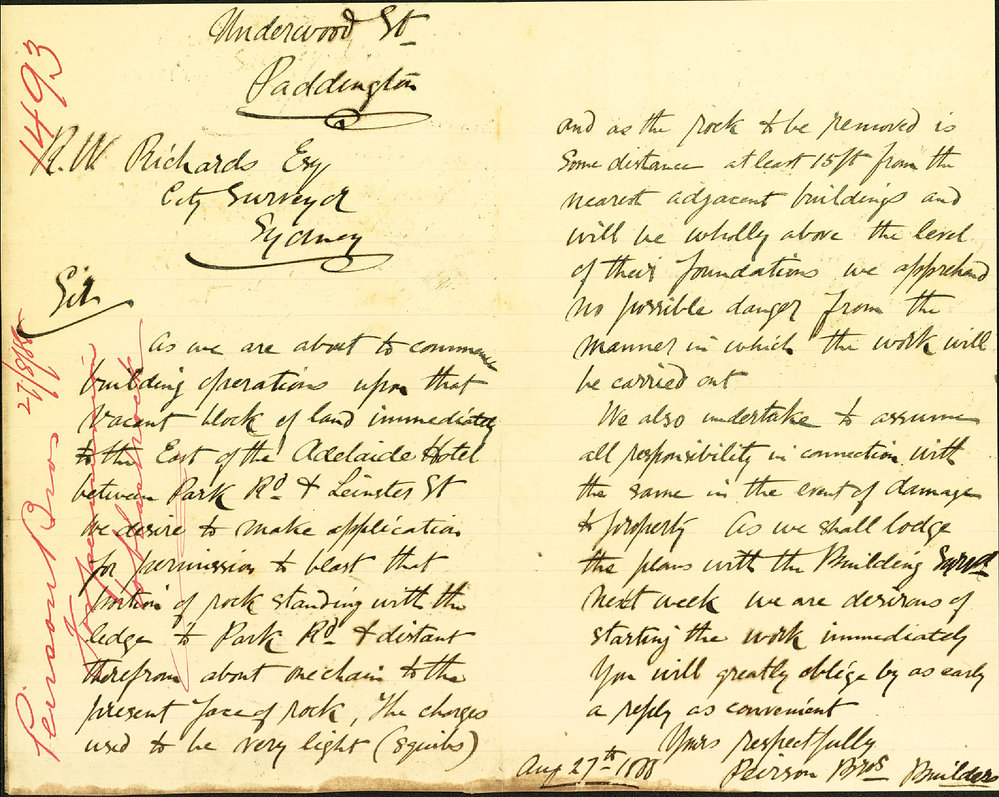 Underwood St
Paddington
R.W Richards Esq
City Surveyor
Sydney
Sir
As we are about to commence
building operations upon that
Vacant block of land immediately
to the East of the Adelaide Hotel
between Park Rd & Leinster St
We desire to make application
for permission to blast that
portion of rock standing with the
ledge to Park Rd & distant
therefrom about one chain to the
present face of rock, The charges
used to be very light (squibs)
and as the rock to be removed is
Some distance at least 15ft from the
nearest adjacent buildings and
will be wholly above the level
of their foundations we apprehend
no possible danger from the
manner in which the work will
be carried out
We also undertake to assume
all responsibility in connection with
the same in the event of damage
to property As we shall lodge
the plans with the Building Survr
next week we are desirous of
starting the work immediately
You will greatly oblige by as early
a reply as convenient
Yours respectfully
Peirson Bros Builders
Aug 27th 1888
1493
Peirson Bros 27/8/88
For permission
to blast rock